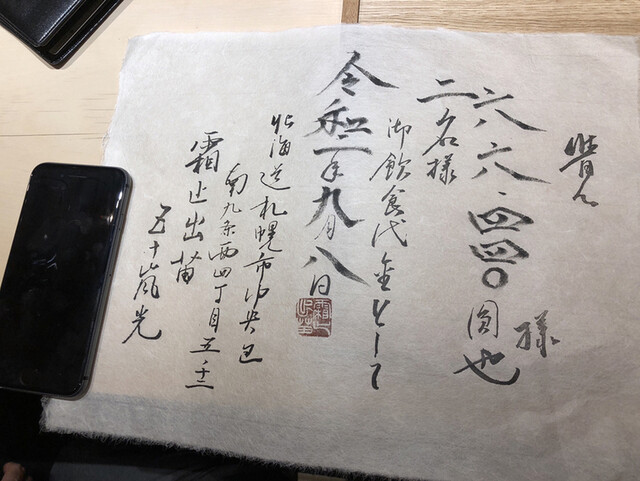 様
六六・四四〇圓也
二名様
御飲食代金として
令和二年九月八日
北海道札幌市中央区
南九条西四丁目
霜止出苗
五十嵐光